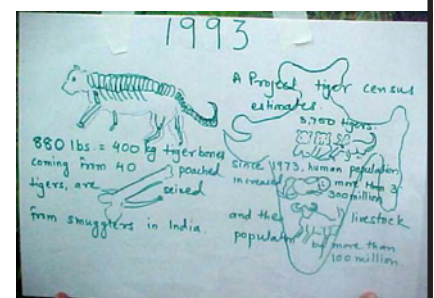 1993
880 lbs. = 400 kg tiger bones
coming from 40 poached
tigers, are seized
from smugglers in India.
A Project tiger census
estimates
3,750 tigers.
Since 1973, human population
increased more than
300 million
and the livestock
population by more than
100 million.